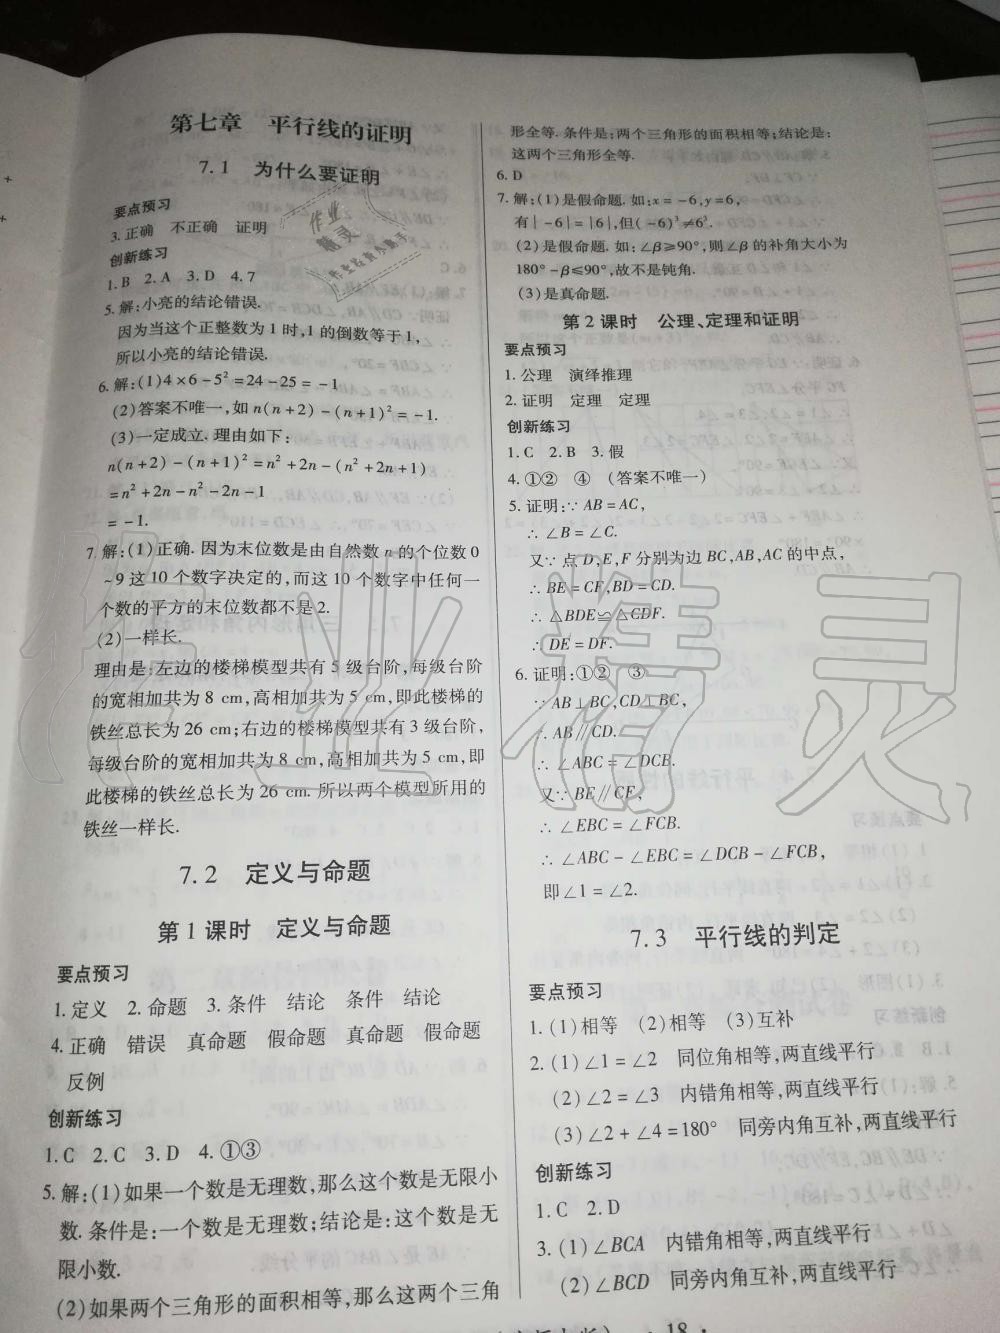 第七章 平行线的证明
7.1 为什么要证明
要点预习
3.正确 不正确 证明
创新练习
1.B 2.A 3.D 4.7
5.解:小亮的结论错误.
因为当这个正整数为1时,1的倒数等于1,
所以小亮的结论错误.
6.解:(1)4×6-5²=24-25=-1
(2)答案不唯一,如n(n+2)-(n+1)²=-1.
(3)一定成立.理由如下:
n(n+2)-(n+1)²=n²+2n-(n²+2n+1)
=n²+2n-n²-2n-1
=-1.
7.解:(1)正确.因为末位数是由自然数n的个位数0
~9这10个数字决定的,而这10个数字中任何一
个数的平方的末位数都不是2.
(2)一样长.
理由是:左边的楼梯模型共有5级台阶,每级台阶
的宽相加共为8 cm,高相加共为5 cm,即此楼梯的
铁丝总长为26 cm;右边的楼梯模型共有3级台阶,
每级台阶的宽相加共为8 cm,高相加共为5 cm,即
此楼梯的铁丝总长为26 cm.所以两个模型所用的
铁丝一样长.
7.2 定义与命题
第1课时 定义与命题
要点预习
1.定义 2.命题 3.条件 结论 条件 结论
4.正确 错误 真命题 假命题 真命题 假命题
反例
创新练习
1.C 2.C 3.D 4.①③
5.解:(1)如果一个数是无理数,那么这个数是无限小
数.条件是:一个数是无理数;结论是:这个数是无
限小数.
(2)如果两个三角形的面积相等,那么这两个三角
形全等.条件是:两个三角形的面积相等;结论是:
这两个三角形全等.
6.D
7.解:(1)是假命题.如:x=-6,y=6,
有|-6|=|6|,但(-6)³≠6³.
(2)是假命题.如:∠β≥90°,则∠β的补角大小为
180°-β≤90°,故不是钝角.
(3)是真命题.
第2课时 公理、定理和证明
要点预习
1.公理 演绎推理
2.证明 定理 定理
创新练习
1.C 2.B 3.假
4.①② ④ (答案不唯一)
5.证明:∵AB=AC,
∴∠B=∠C.
又∵点D,E,F分别为边BC,AB,AC的中点,
∴BE=CF,BD=CD.
∴△BDE≌△CDF.
∴DE=DF.
6.证明:①② ③
∵AB⊥BC,CD⊥BC,
∴AB∥CD.
∴∠ABC=∠DCB.
又∵BE∥CF,
∴∠EBC=∠FCB.
∴∠ABC-∠EBC=∠DCB-∠FCB,
即∠1=∠2.
7.3 平行线的判定
要点预习
1.(1)相等 (2)相等 (3)互补
2.(1)∠1=∠2 同位角相等,两直线平行
(2)∠2=∠3 内错角相等,两直线平行
(3)∠2+∠4=180° 同旁内角互补,两直线平行
创新练习
1.C 2.D
3.(1)∠BCA 内错角相等,两直线平行
(2)∠BCD 同旁内角互补,两直线平行
18
作业精灵